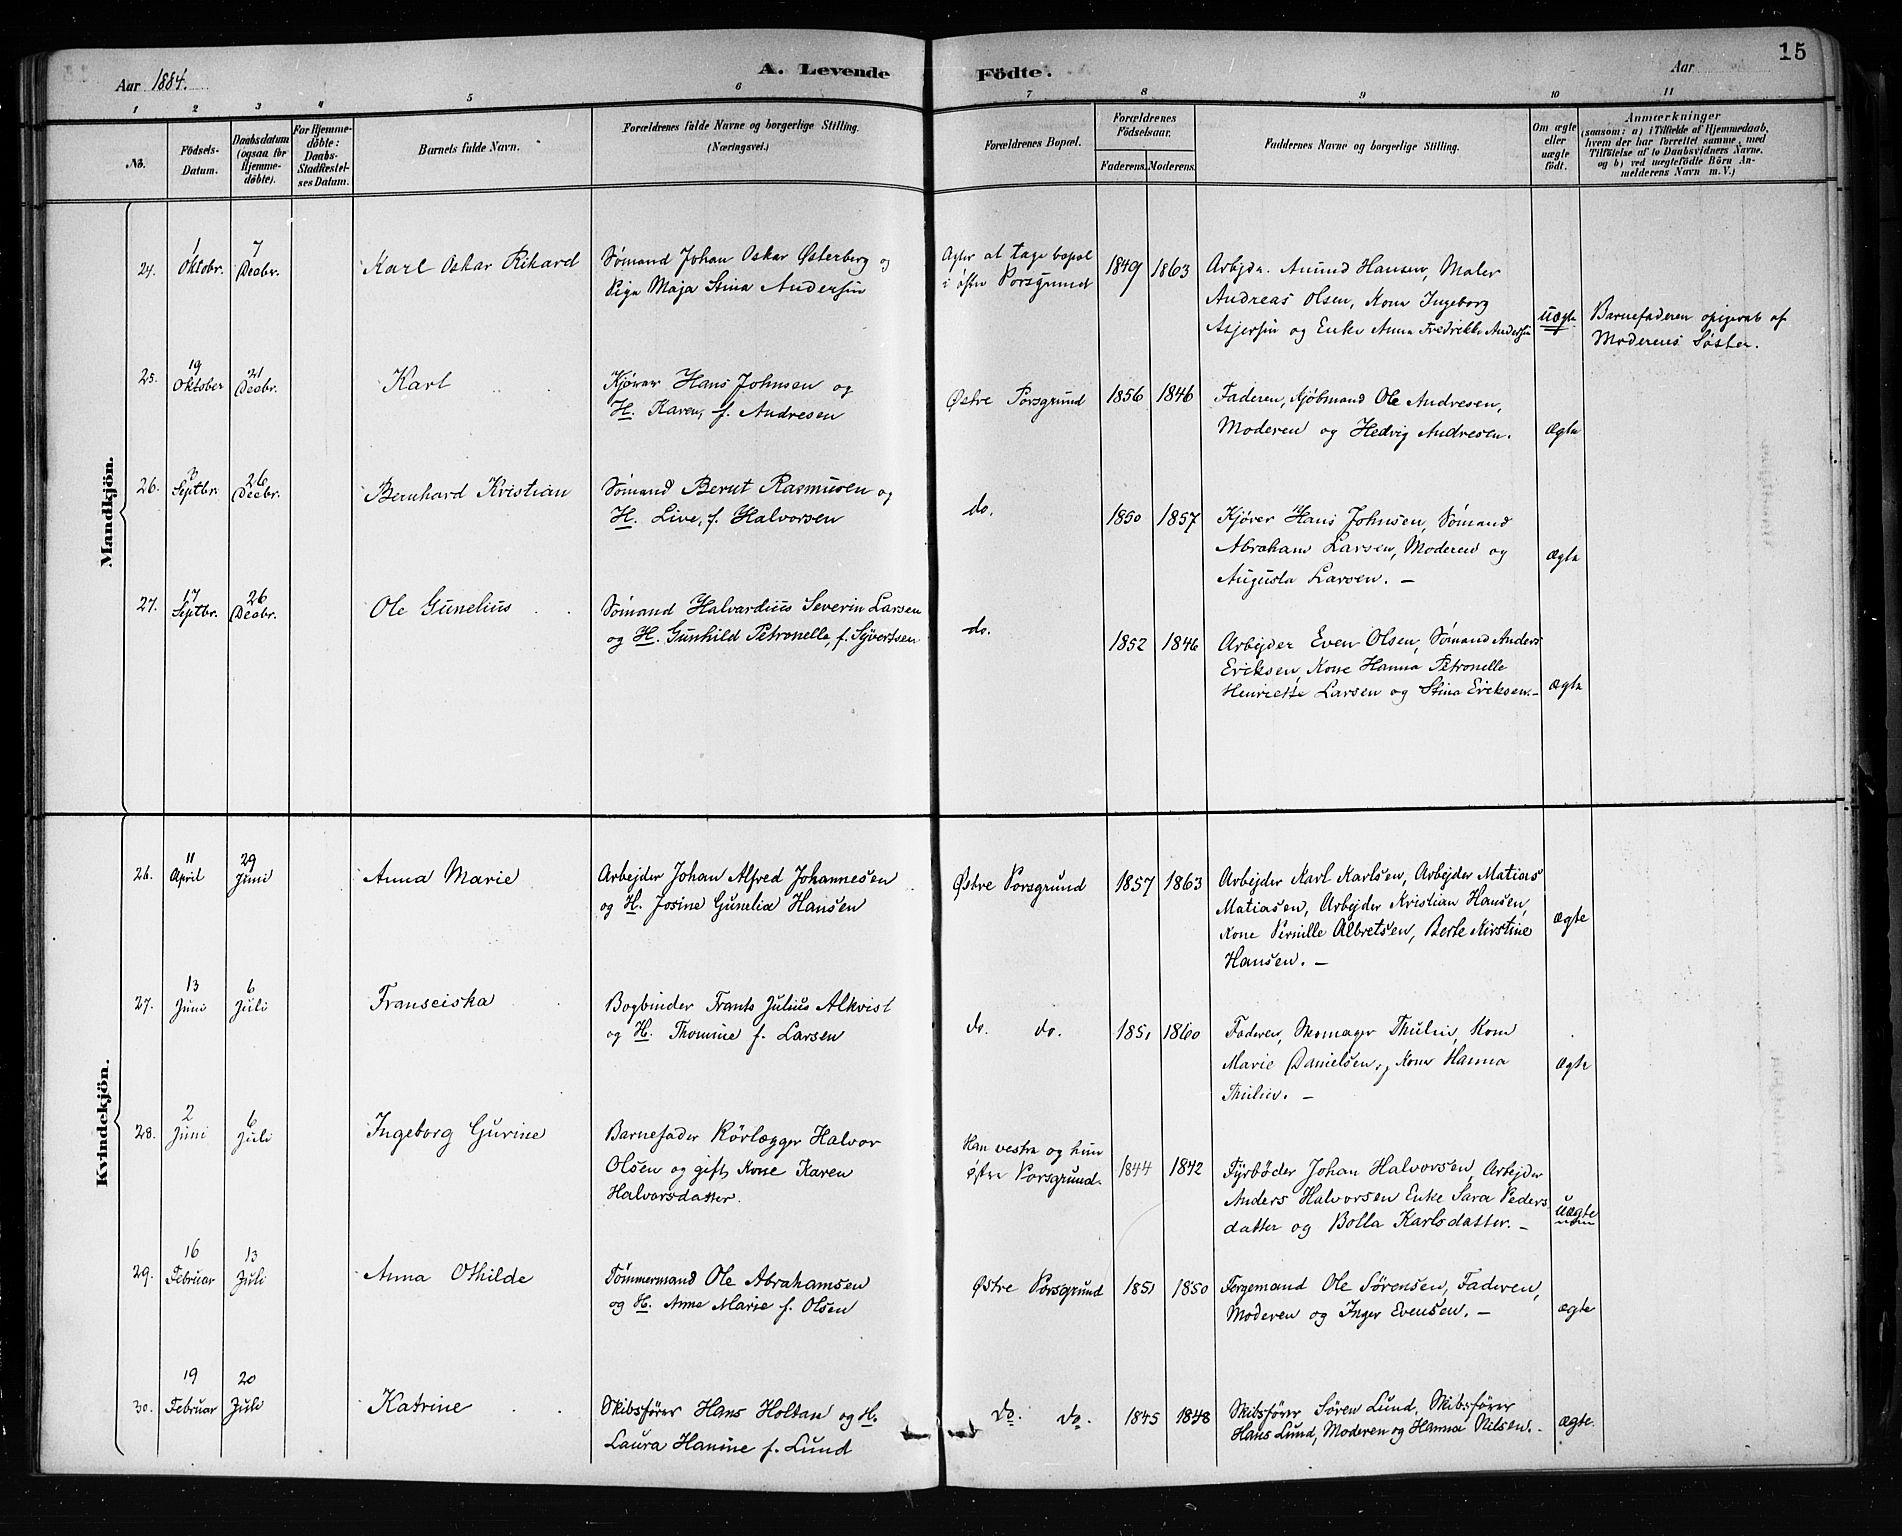 15
Aar 1884.
A. Levende Födte.
Aar
1 2 3 4 5 6 7 8 9 10 11
No.
Födsels-Datum.
Daabsdatum (ogsaa for Hjemmedöbte).
For Hjemmedöbte: Daabs-Stadfæstelses Datum.
Barnets fulde Navn.
Forældrenes fulde Navne og borgerlige Stilling.
(Næringsvei.)
Forældrenes Bopæl.
Forældrenes Födselsaar.
Faderens. Moderens.
Faddernes Navne og borgerlige Stilling.
Om ægte eller uægte födt.
Anmærkninger
(saasom: a) i Tilfælde af Hjemmedaab, hvem der har forrettet samme, med Tilföielse af to Daabsvidners Navne, og b) ved uægtefödte Börn Anmelderens Navn m. V.)
Mandkjön.
24. 1 Oktobr. 7 Decbr. Karl Oskar Rikard
Sømand Johan Oskar Østerberg og
Pige Maja Stina Andersen
Agter at tage bopæl
i østre Porsgrund
1849 1863
Arbejder Amund Hansen, Maler
Andreas Olsen, Kone Ingeborg
Asjersen og Enke Anna Fredrikke Andersen
uægte
Barnefaderen opgivet af
Moderens Søster.
25. 19 Oktober 21 Decbr. Karl
Kjører Hans Johnsen og
H. Karen, f. Andresen
Østre Porsgrund
1856 1846
Faderen, Kjøbmand Ole Andresen,
Moderen og Hedvig Andresen.
Ægte
26. 3 Septbr. 26 Decbr. Bernhard Kristian
Sømand Bernt Rasmusen og
H. Live, f. Halvorsen
do.
1850 1857
Kjører Hans Johnsen, Sømand
Abraham Larsen, Moderen og
Augusta Larsen. —
Ægte
27. 17 Septbr. 26 Decbr. Ole Gunelius
Sømand Halvardius Severin Larsen
og H. Gunhild Petronelle, f. Syvertsen
do.
1852 1846
Arbejder Even Olsen, Sømand Anders
Eriksen, Kone Hanna Petronelle
Henriette Larsen og Stina Eriksen. —
Ægte
Kvindekjön.
26. 11 April 29 Juni Anna Marie
Arbejder Johan Alfred Johannesen
og H. Josine Gunelia Hansen
Østre Porsgrund
1857 1863
Arbejder Karl Karlsen, Arbejder Matias
Matiasen, Arbejder Kristian Hansen,
Kone Pernille Albretsen, Berte Kirstine
Hansen. —
Ægte
27. 13 Juni 6 Juli Franseiska
Bogbinder Frants Julius Alkvist
og H. Thomine f. Larsen
do. do.
1851 1860
Faderen, Skomager Thulin, Kone
Marie Danielsen, Kone Hanna
Thulin. —
Ægte
28. 2 Juni 6 Juli Ingeborg Gurine
Barnefader Rörlægger Halvor
Olsen og gift Kone Karen
Halvorsdatter.
Han vestre og hun
østre Porsgrund.
1844 1842
Fyrbøder Johan Halvorsen, Arbejder
Anders Halvorsen Enke Sara Peders
datter og Bolla Karlsdatter. —
uægte
29. 16 Februar 13 Juli Anna Othilde
Tømmermand Ole Abrahamsen
og H. Anne Marie f. Olsen
Østre Porsgrund
1851 1850
Fergemand Ole Sørensen, Faderen,
Moderen og Inger Evensen. —
ægte
30. 19 Februar 20 Juli Katrine
Skibsfører Hans Holtan og H.
Laura Hanine f. Lund
do. do.
1845 1848
Skibsfører Søren Lund, Skibsfører
Hans Lund, Moderen og Hanna Nilsen. -
ægte.